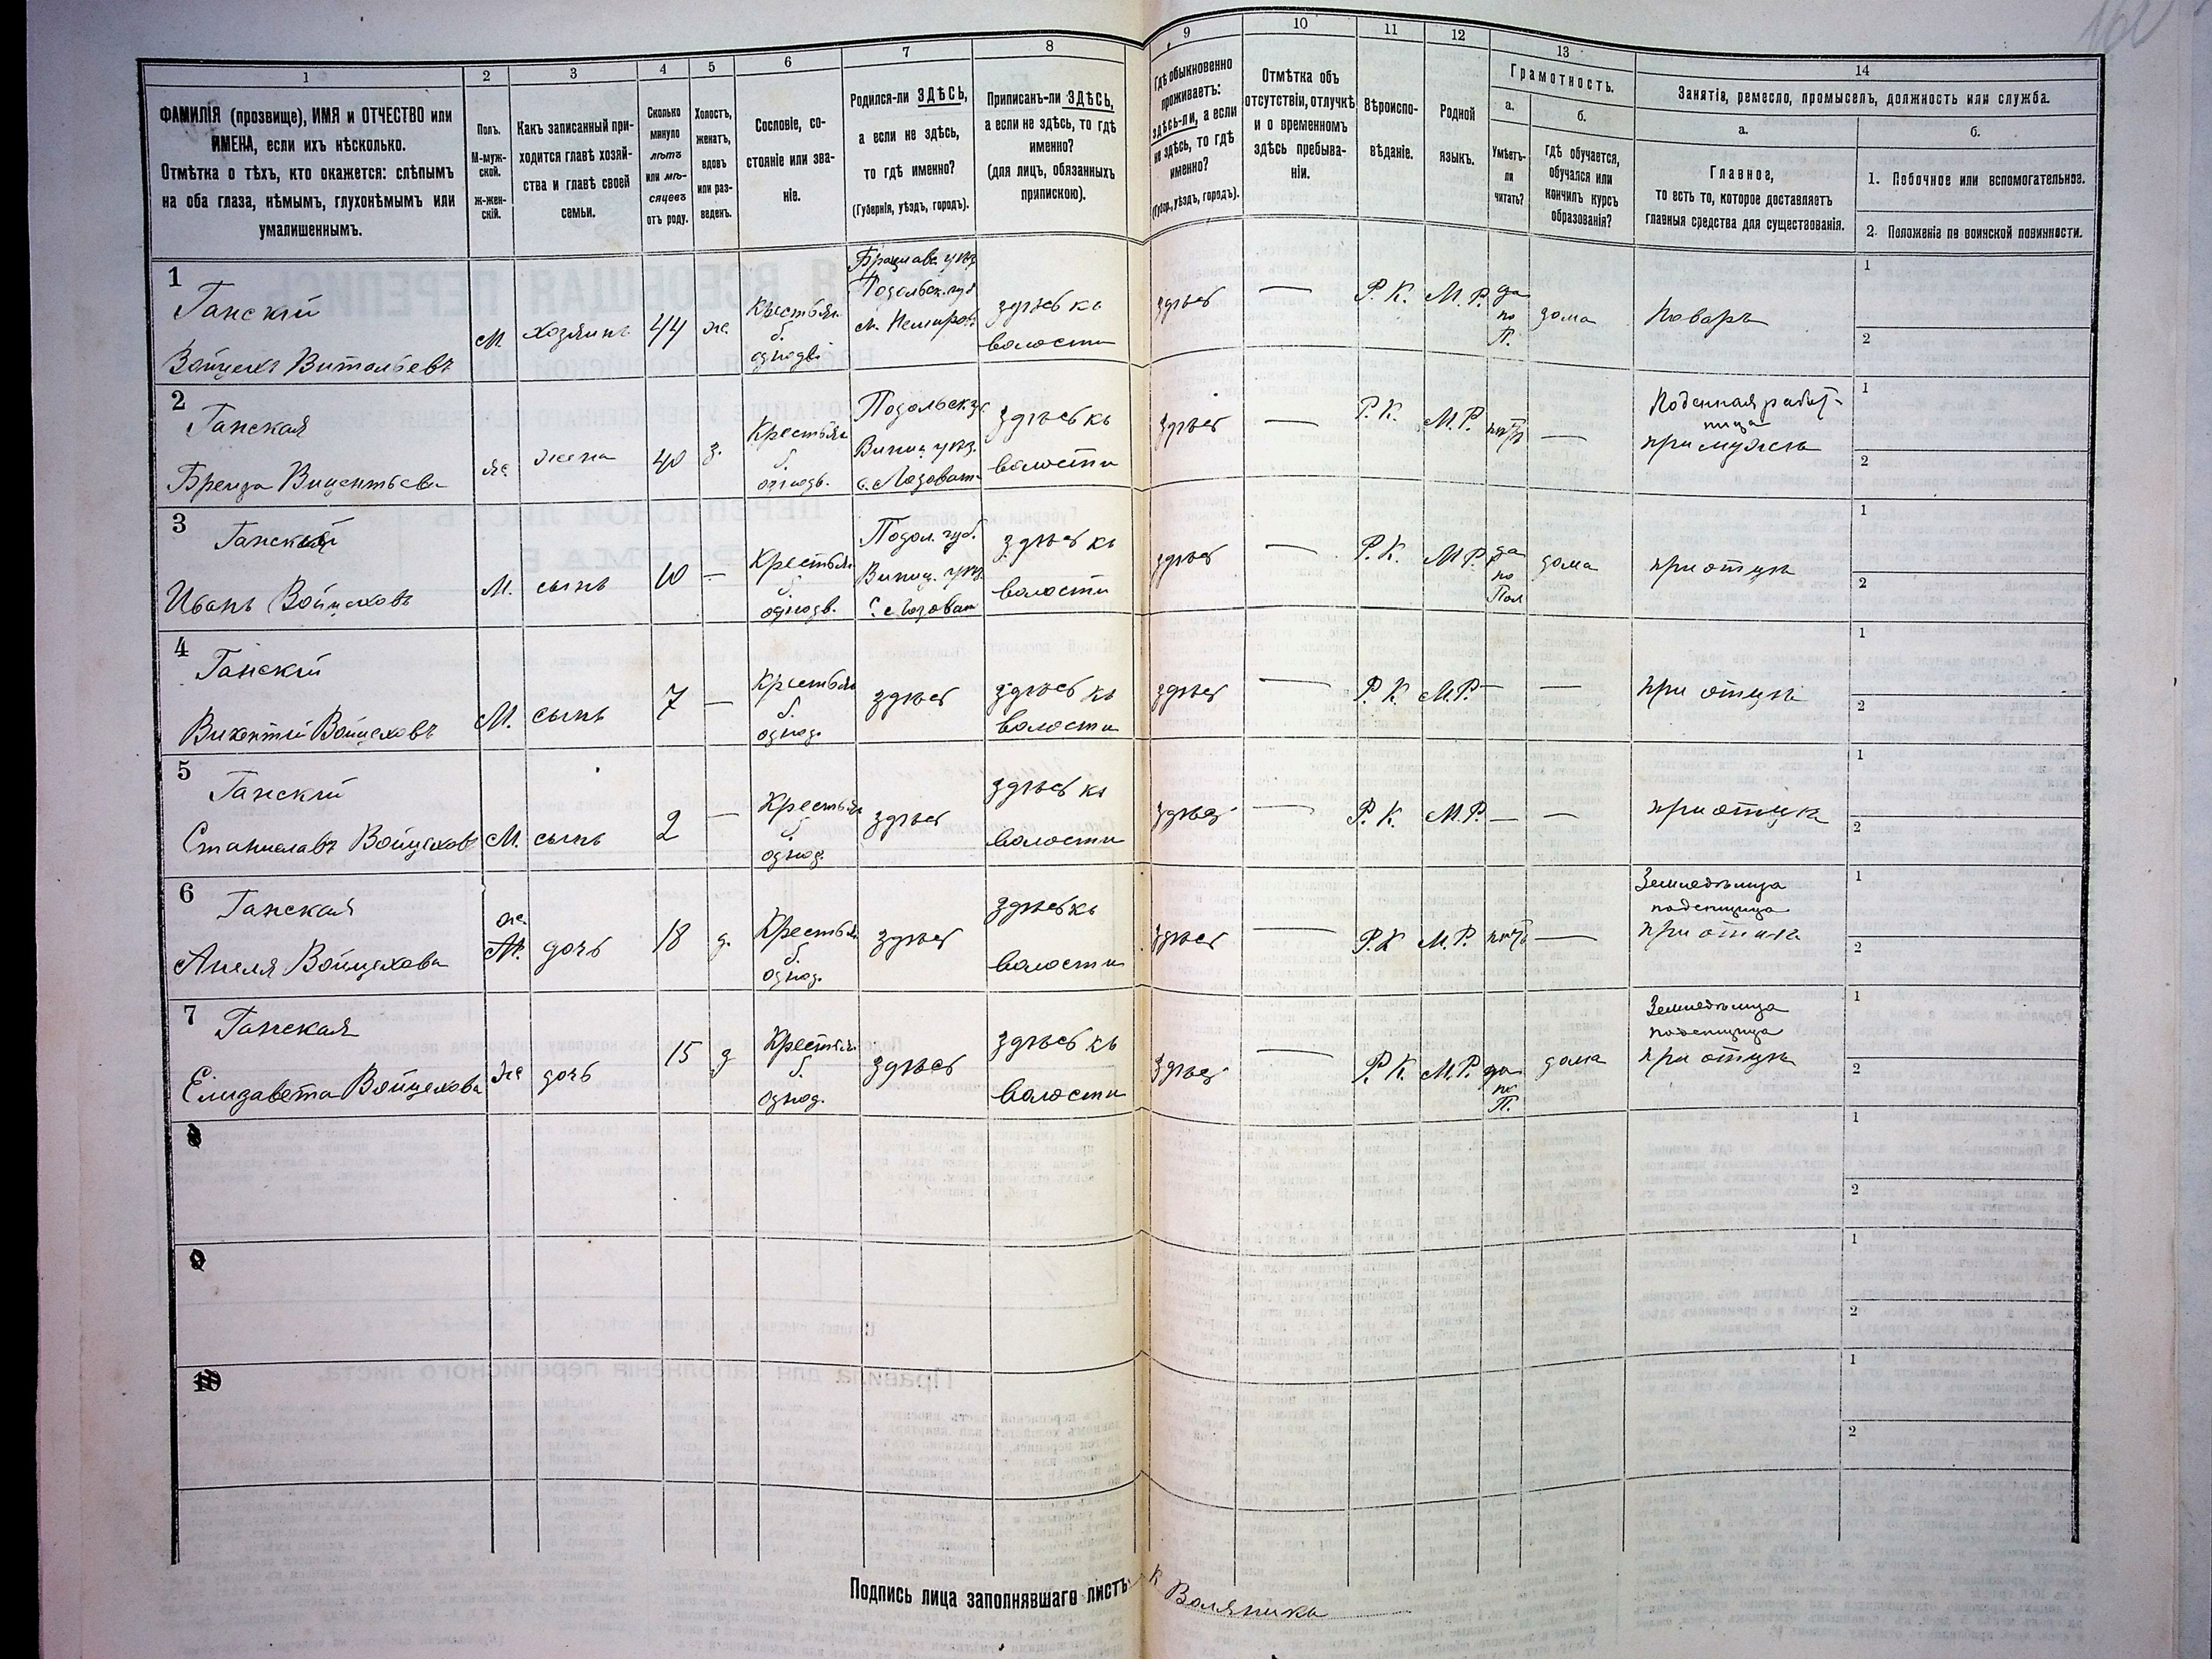 160
1
2
3
4
5
6
7
8
9
10
11
12
13
14
ФАМИЛІЯ (прозвище), ИМЯ и ОТЧЕСТВО или
ИМЕНА, если ихъ нѣсколько.
Отмѣтка о тѣхъ, кто окажется: слѣпымъ
на оба глаза, нѣмымъ, глухонѣмымъ или
умалишеннымъ.
Полъ.
М-муж-
ской.
Ж-жен-
скій.
Какъ записанный при-
ходится главѣ хозяй-
ства и главѣ своей
семьи.
Сколько
минуло
лѣтъ
или мѣ-
сяцевъ
отъ роду.
Холостъ,
женатъ,
вдовъ
или раз-
веденъ.
Сословіе, со-
стояніе или зва-
ніе.
Родился-ли ЗДѢСЬ,
а если не здѣсь,
то гдѣ именно?
(Губернія, уѣздъ, городъ).
Приписанъ-ли ЗДѢСЬ,
а если не здѣсь, то гдѣ
именно?
(для лицъ, обязанныхъ
припискою).
Гдѣ обыкновенно
проживаетъ:
здѣсь-ли, а если
не здѣсь, то гдѣ
именно?
(Губер., уѣздъ, городъ).
Отмѣтка объ
отсутствіи, отлучкѣ
и о временномъ
здѣсь пребыва-
ніи.
Вѣроиспо-
вѣданіе.
Родной
языкъ.
Грамотность.
а.
Умѣетъ-
ли
читать?
б.
гдѣ обучается,
обучался или
кончилъ курсъ
образованія?
Занятія, ремесло, промыселъ, должность или служба.
а.
Главное,
то есть то, которое доставляетъ
главныя средства для существованія.
б.
1. Побочное или вспомогательное.
2. Положеніе по воинской повинности.
1
Ганскій
Войцехъ Витольевъ
М
хозяинъ
44
ж
Крестьян
б.
однодв.
Брацлав. уѣз
Подольск. губ
м. Немиров
здѣсь къ
волости
здѣсь
—
Р. К.
М. Р.
да
по
П.
дома
Поваръ
1
2
2
Ганская
Викентьева
ж
жена
40
з.
Крестьян
б.
однодв.
Подольск. г.
Винниц. уѣз.
с. Лозоват
здѣсь къ
волости
здѣсь
—
Р. К.
М. Р.
нѣтъ
—
Поденная работ-
ница
при мужѣ
1
2
3
Ганскій
Иванъ Войцеховъ
М.
сынъ
10
—
Крестьян
б.
однодв.
Подол. губ.
Винниц. уѣз.
с. Лозоват
здѣсь къ
волости
здѣсь
—
Р. К.
М. Р.
да
по
Пол
дома
при отцѣ
1
2
4
Ганскій
Викентій Войцеховъ
М.
сынъ
7
—
Крестьян
б.
однод.
здѣсь
здѣсь къ
волости
здѣсь
—
Р. К.
М. Р.
—
—
при отцѣ
1
2
5
Ганскій
Станиславъ Войцеховъ
М.
сынъ
2
—
Крестьян
б.
однод.
здѣсь
здѣсь къ
волости
здѣсь
—
Р. К.
М. Р.
—
—
при отцѣ
1
2
6
Ганская
Анеля Войцехова
ж.
М.
дочь
18
д.
Крестьян
б.
однод.
здѣсь
здѣсь къ
волости
здѣсь
—
Р. К
М. Р.
нѣтъ
—
поденщица
при отцѣ
1
2
7
Ганская
Елизавета Войцехова
ж
дочь
15
д
Крестьян
б.
однод.
здѣсь
здѣсь къ
волости
здѣсь
—
Р. К.
М. Р.
да
по
П.
дома
поденщица
при отцѣ
1
2
8
1
2
9
1
2
10
1
2
Подпись лица заполнявшаго листъ. К